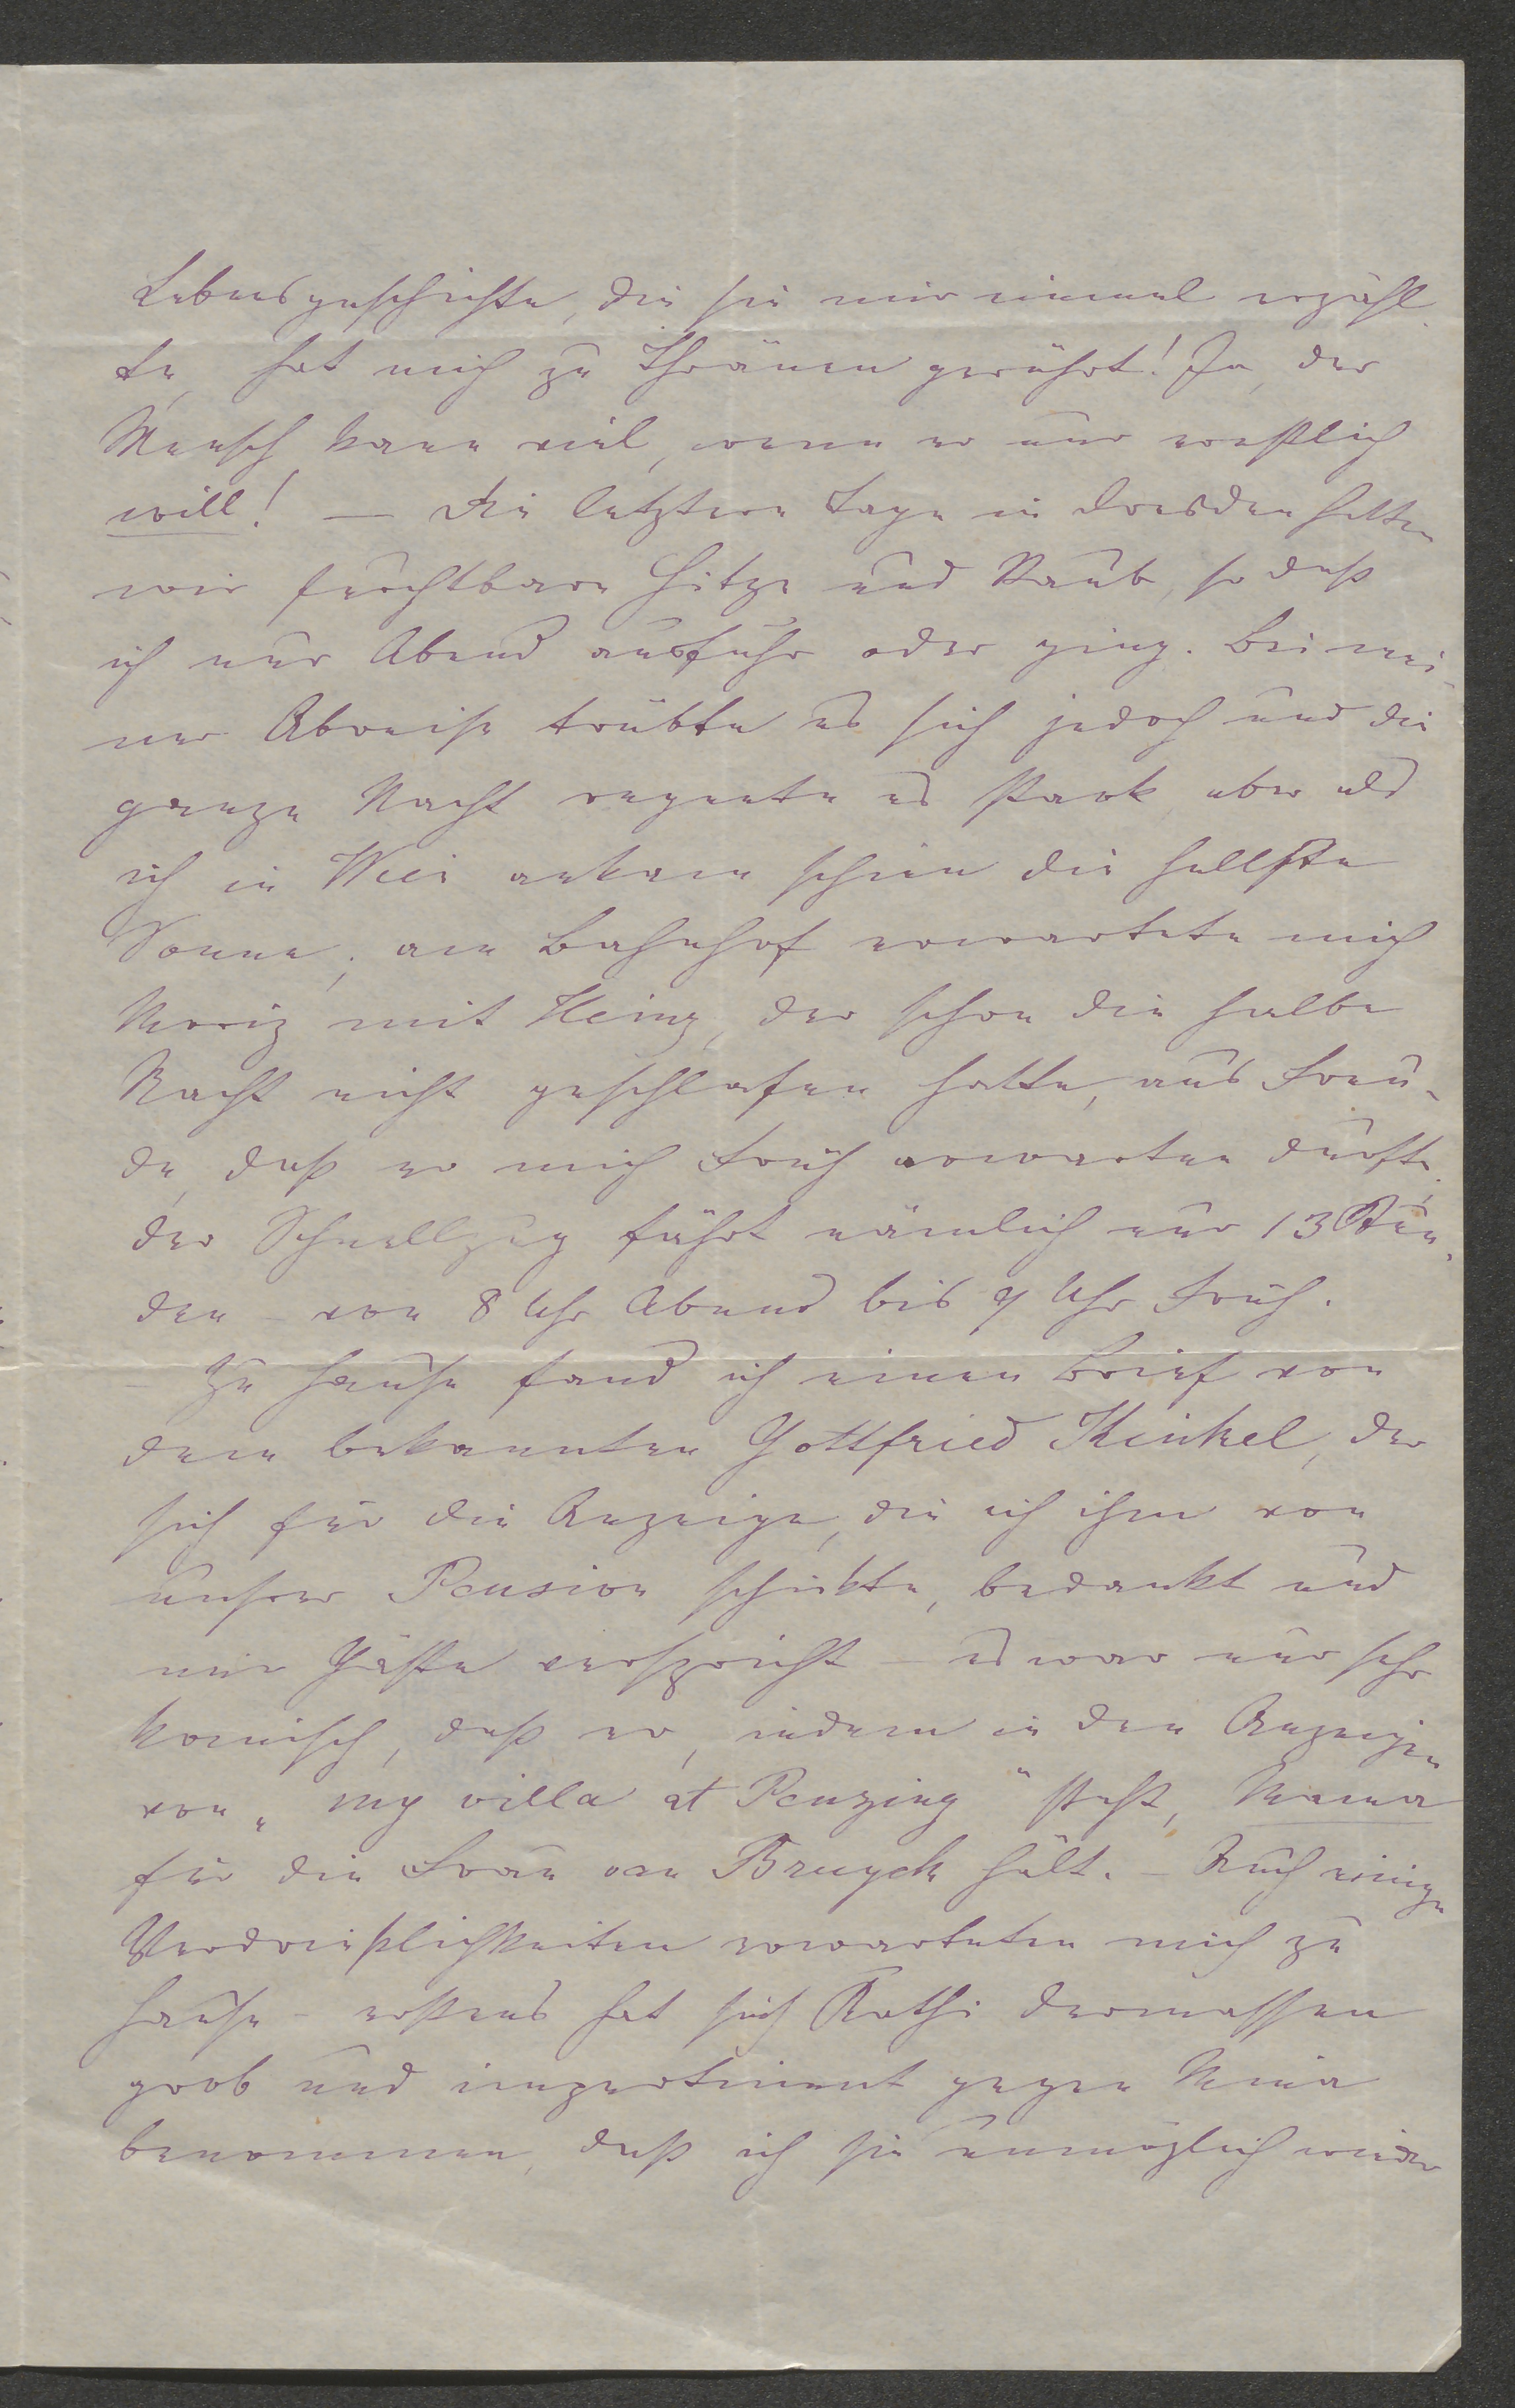 Lebensgeschichte, die sie mir einmal erzähl-
te, hat mich zu Thränen gerührt! Ja, der
Mensch kann viel, wenn er nur ernstlich
will! — Die letztern Tage in Dresden hatten
wir furchtbare Hitze und Staub, so daß
ich nur Abend ausfuhr oder ging. Bei mei-
ner Abreise trübte es sich jedoch und die
ganze Nacht regnete es stark, aber als
ich in Wien ankam schien die hellste
Sonne; am Bahnhof erwartete mich
Moriz mit Heinz, der schon die halbe
Nacht nicht geschlafen hatte, aus Freu-
de, daß er mich früh erwarten durfte.
der Schnellzug fährt nämlich nur 13 Stun-
den – von 8 Uhr Abend bis 9 Uhr Früh.
– Zu Hause fand ich einen Brief von
dem bekannten Gottfried Kinkel, der
sich für die Anzeige, die ich ihm von
unsrer Pension schickte, bedankt und
mir Gäste verspricht – es war nur sehr
komisch, daß er, indem in den Anzeigen
von „my villa at Penzing" steht, Mama
für die Frau van Bruyck hält. – Auch einige
Verdrießlichkeiten erwarteten mich zu
Hause – erstens hat sich Kathi dermassen
grob und impertinent gegen Mina
benommen, daß ich sie unmöglich wieder